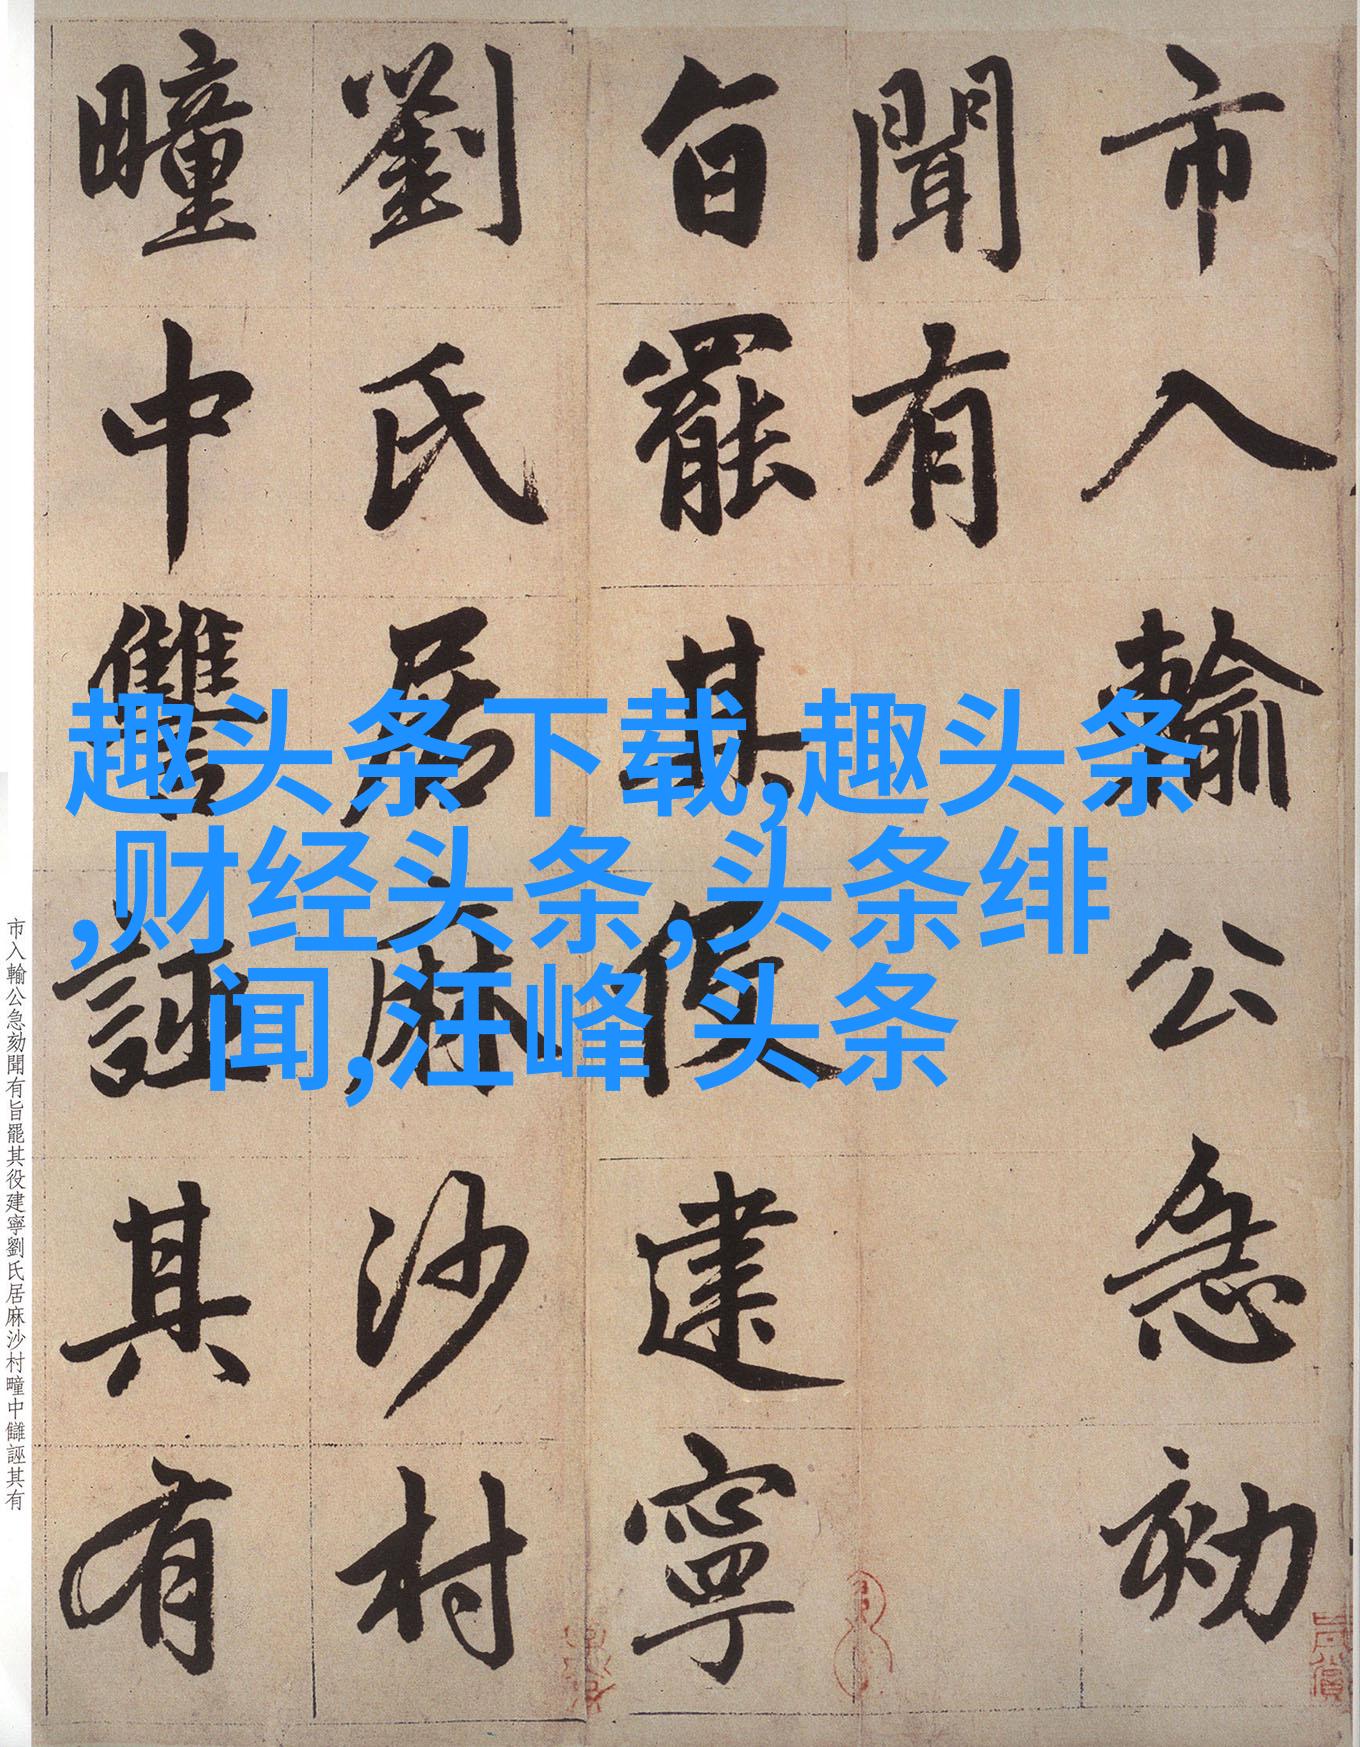 市入輸公急劾
聞有
旨罷其役建寧
劉氏居麻沙村
疃中讎誣其有
趣头条下载,趣头条
,财经头条,头条绯
闻,汪峰 头条
市入輸公急劾聞有旨罷其役建寧劉氏居麻沙村疃中讎誣其有